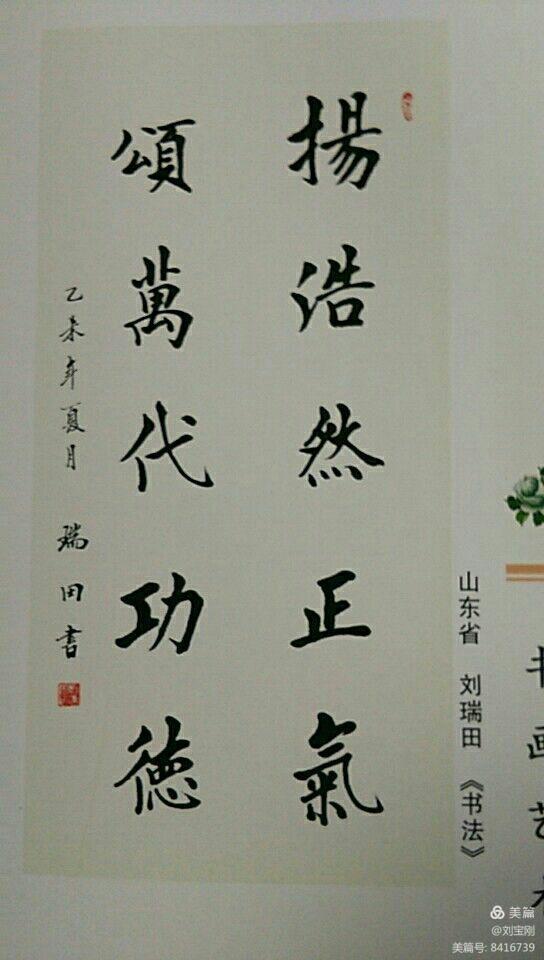 揚浩然正氣
頌萬代功德
乙未年夏月 瑞田書
山东省 刘瑞田 《书法》
书画艺
美篇
@刘宝刚
美篇号: 8416739